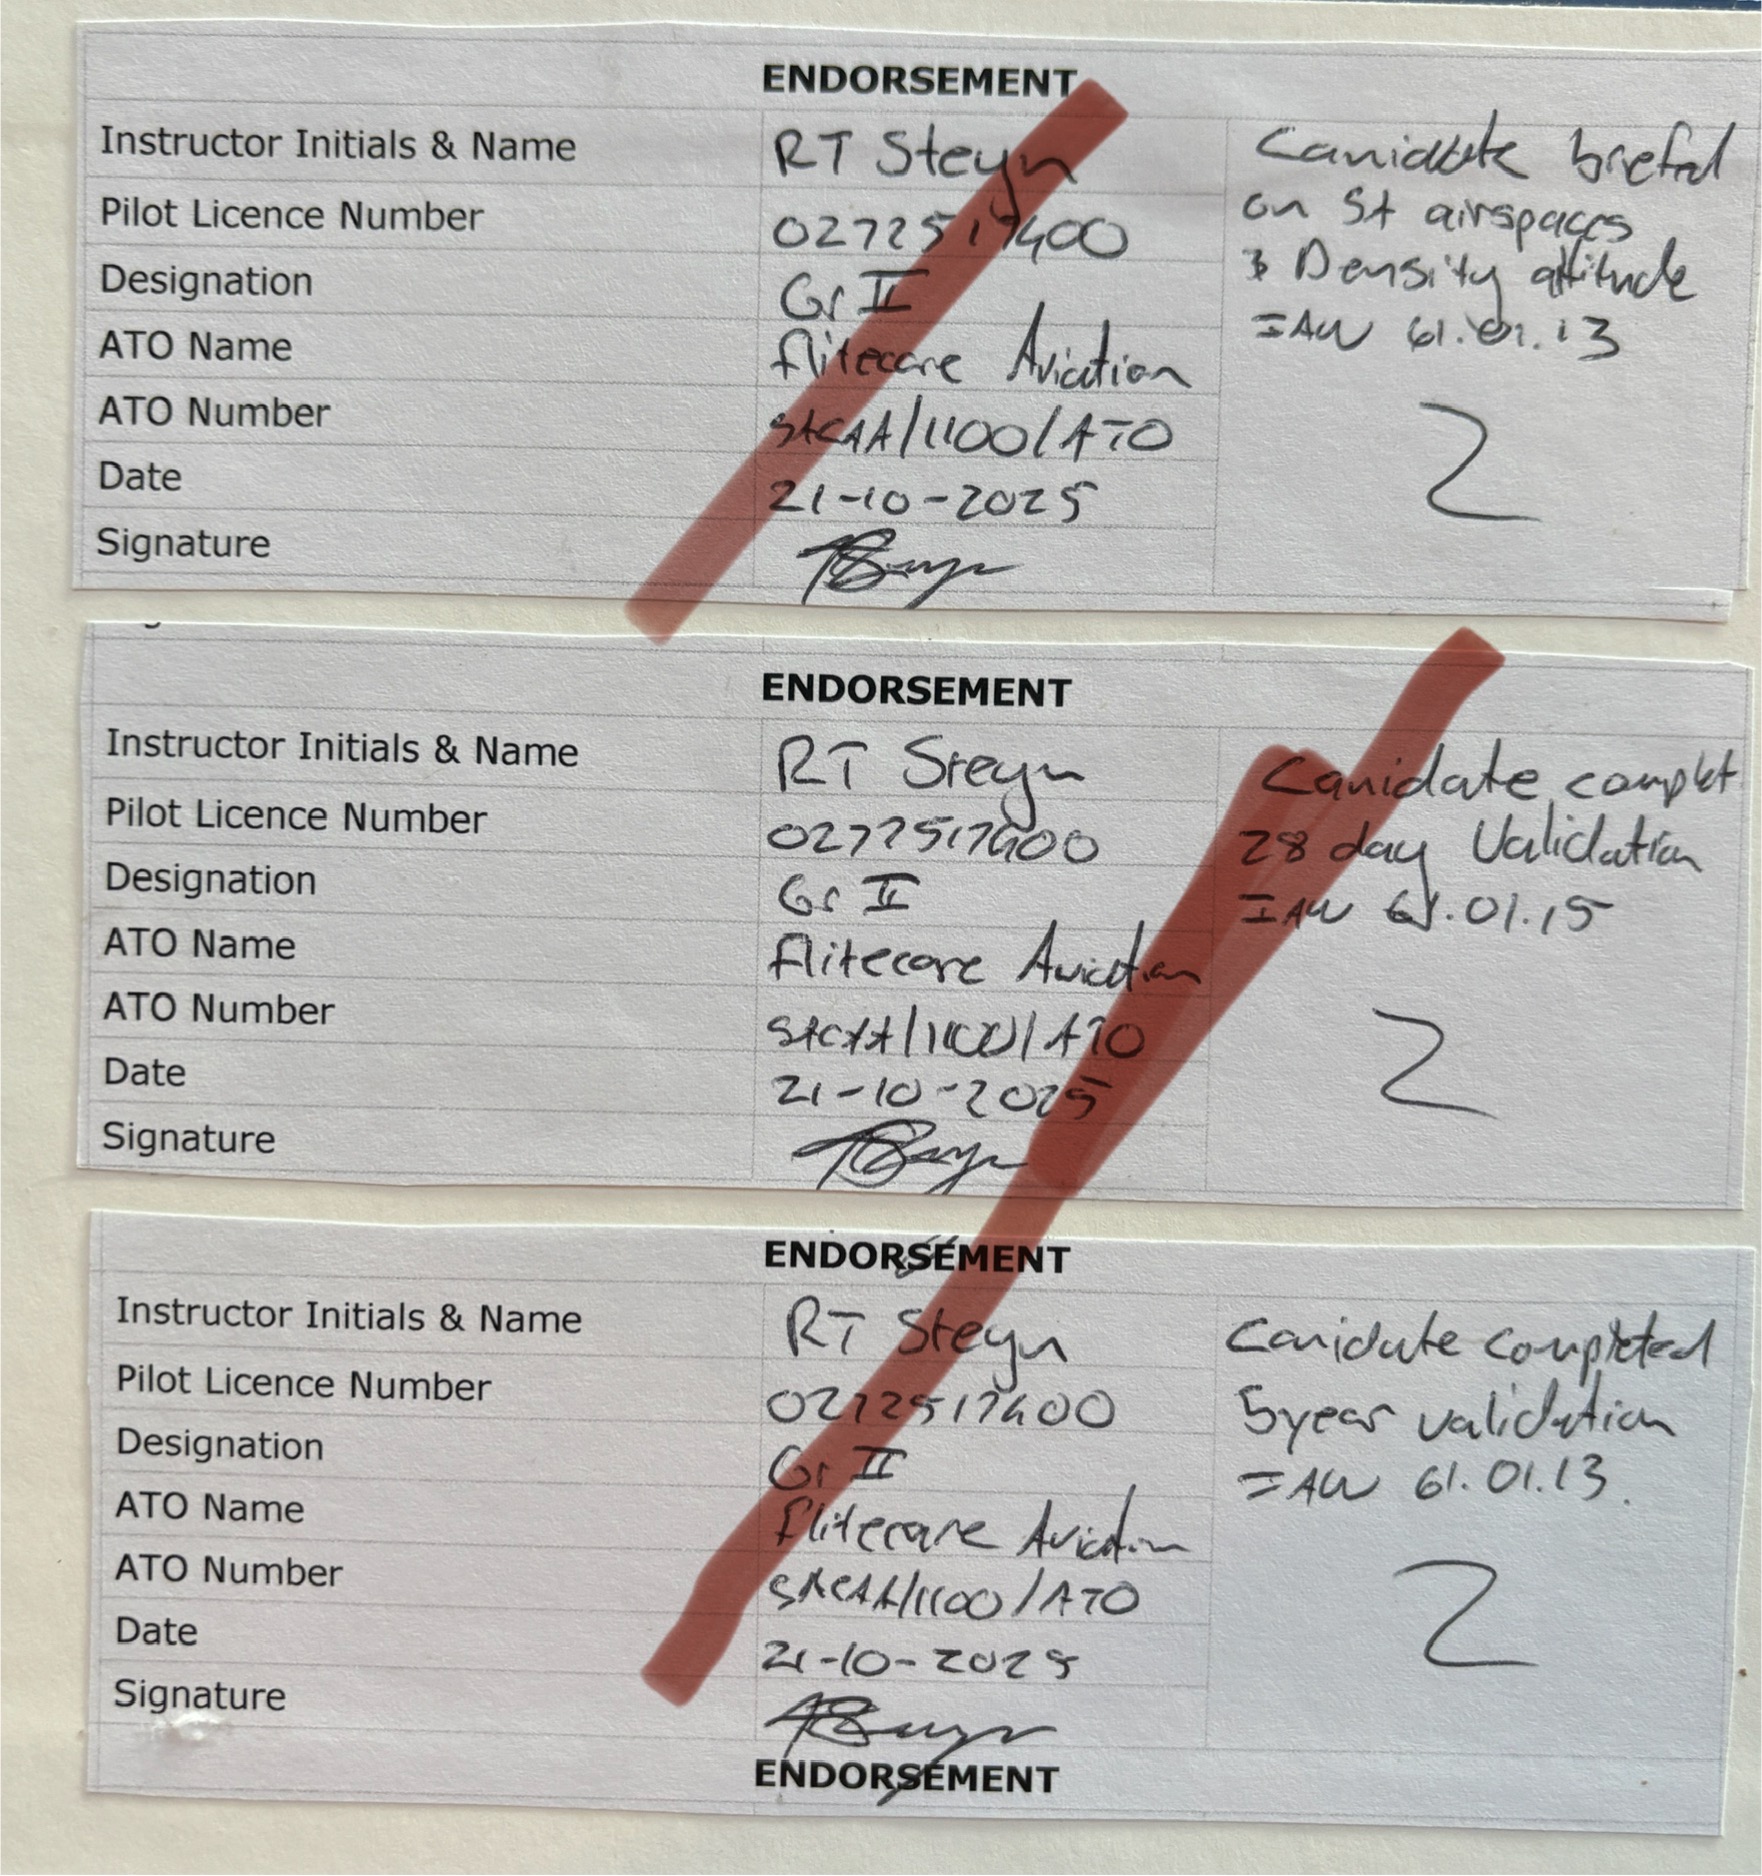 ENDORSEMENT
Instructor Initials & Name RT Steyn
Pilot Licence Number 0272517400
Designation Gr II
ATO Name flitecare Aviation
ATO Number SACAA/1100/ATO
Date 21-10-2025
Signature
Canidate briefed
on SA airspaces
& Density altitude
IAW 61.01.13
ENDORSEMENT
Instructor Initials & Name RT Steyn
Pilot Licence Number 0272517400
Designation Gr II
ATO Name flitecare Aviation
ATO Number SACAA/1100/ATO
Date 21-10-2025
Signature
Canidate complet
28 day Validation
IAW 61.01.15
ENDORSEMENT
Instructor Initials & Name RT Steyn
Pilot Licence Number 0272517400
Designation Gr II
ATO Name flitecare Aviation
ATO Number SACAA/1100/ATO
Date 21-10-2025
Signature
Canidate completed
5year validation
IAW 61.01.13.
ENDORSEMENT